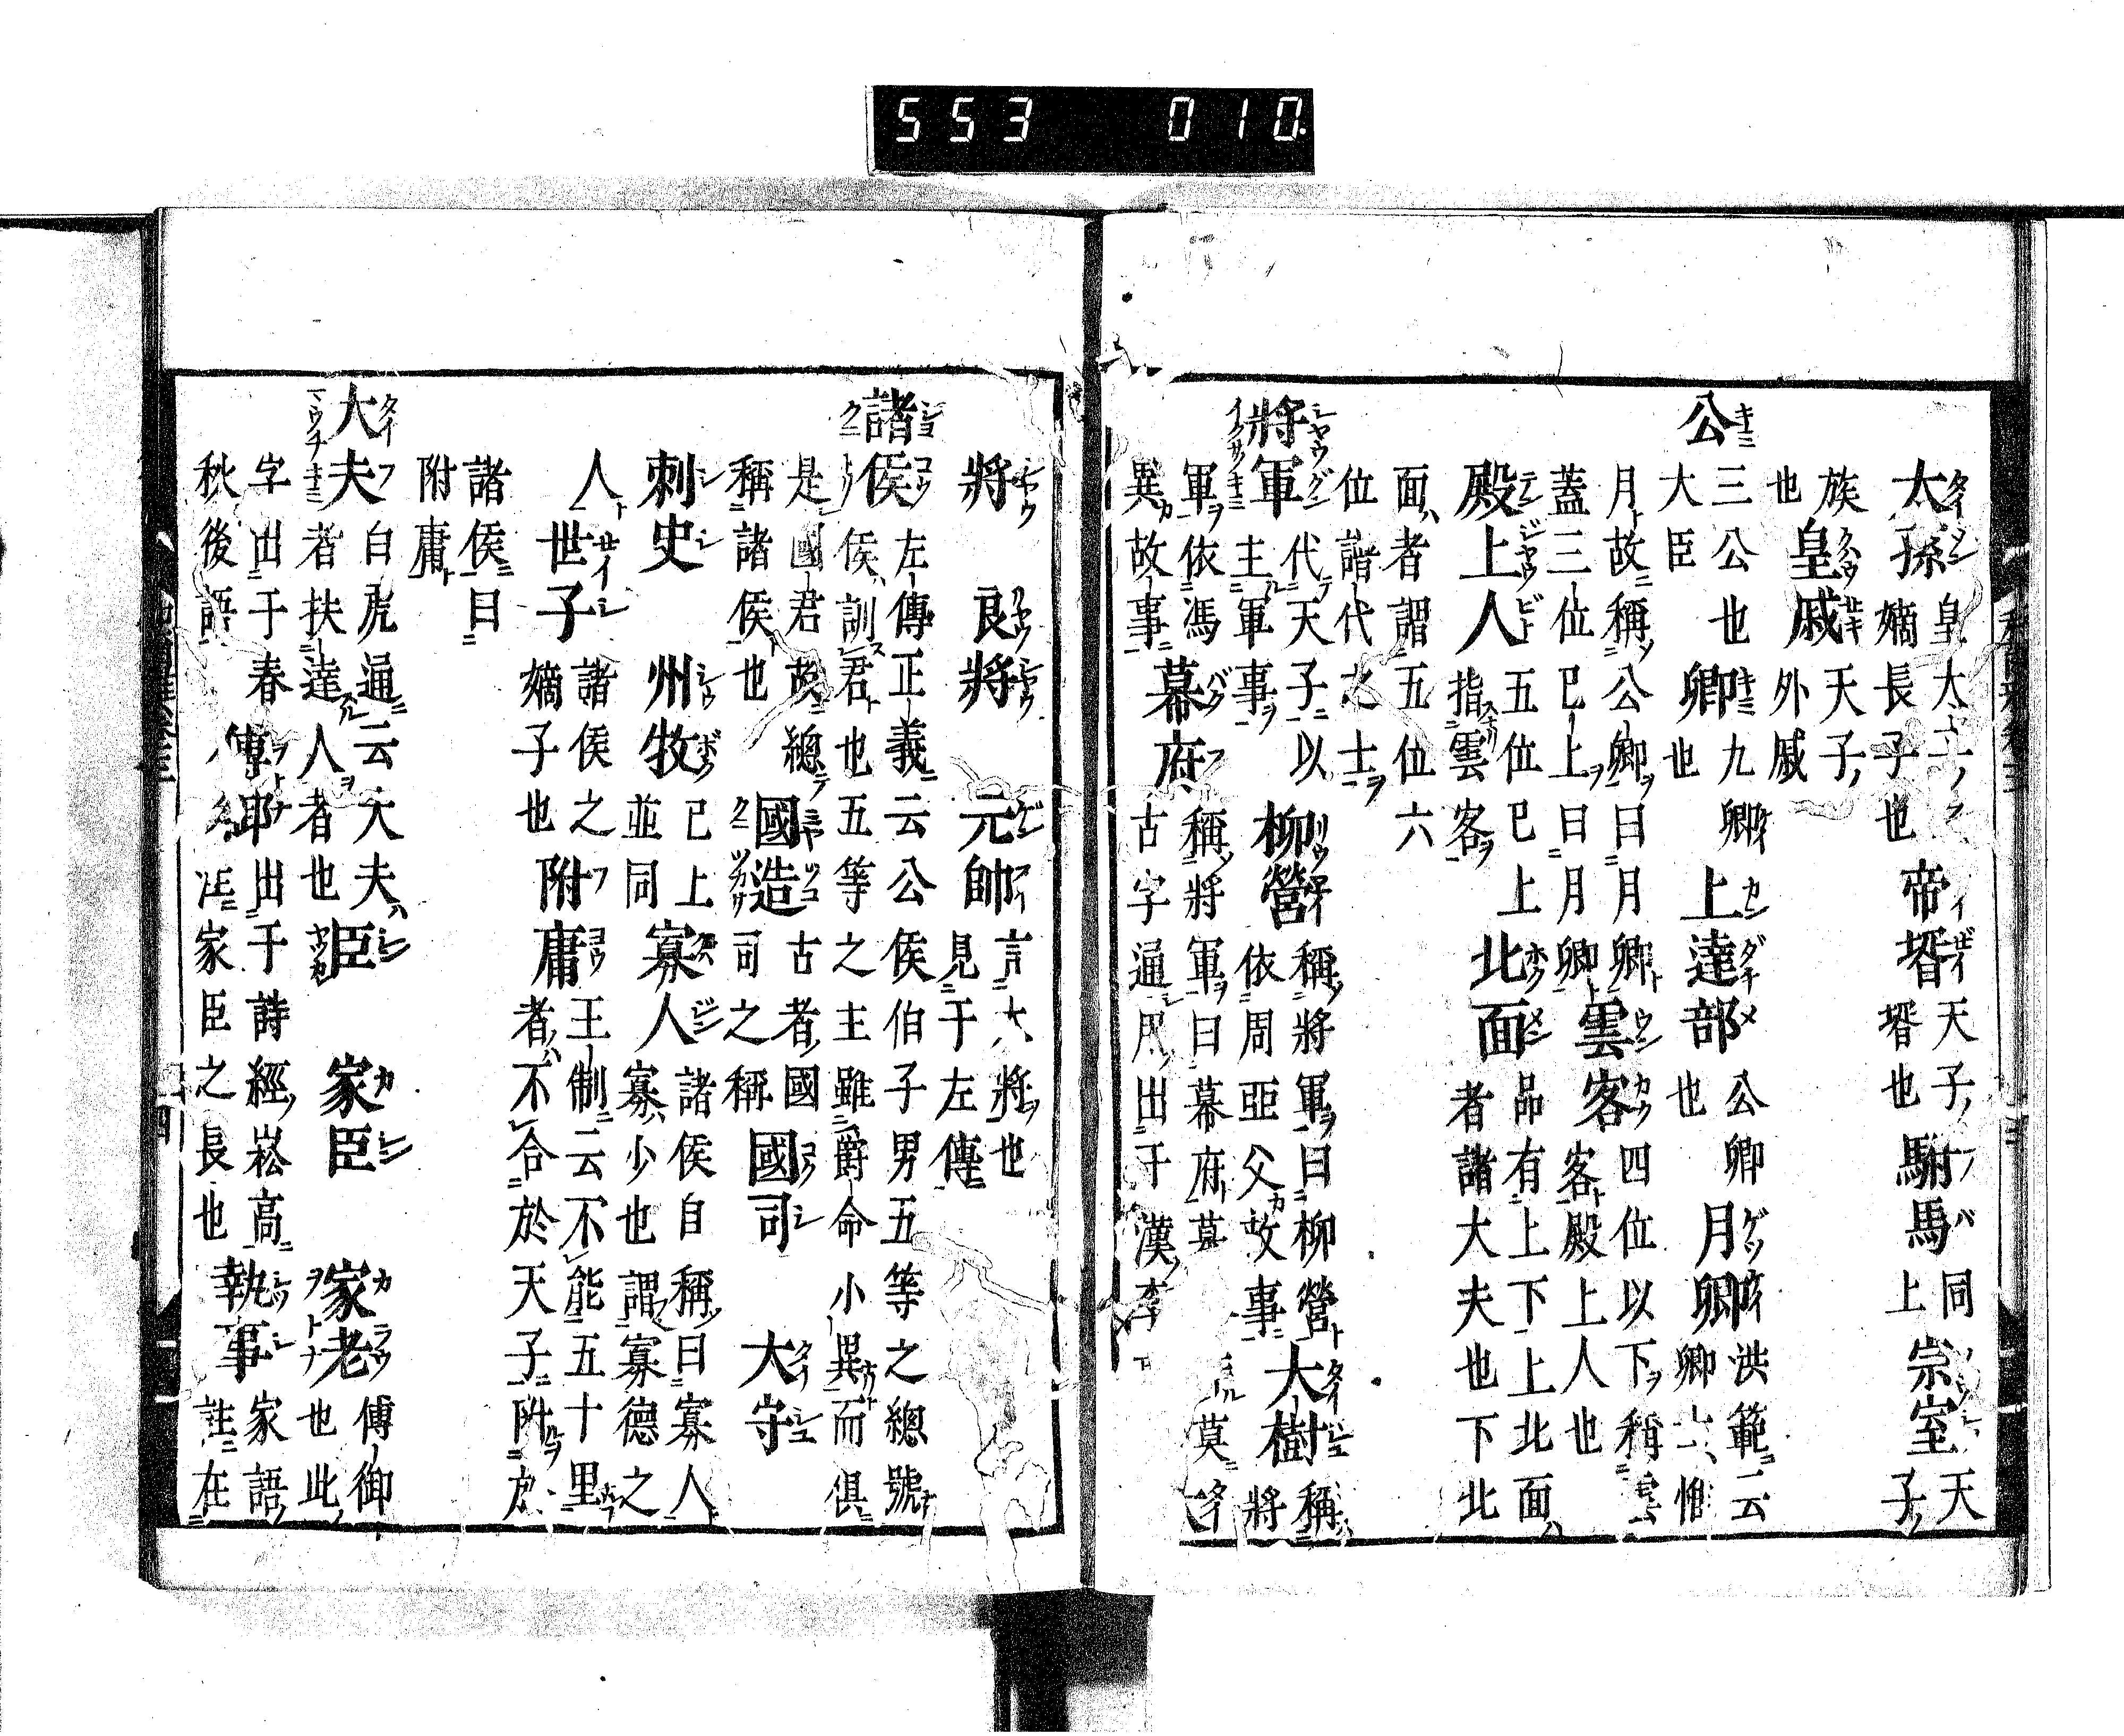 553 010
太孫 皇太子ノ嫡長子也 帝壻 天子ノ壻也 駙馬 同上 宗室 天子ノ
族也 皇戚 天子ノ外戚
公 三公也大臣 卿 九卿也 上達部 公卿也 月卿 洪範云卿惟
月故稱公卿曰月卿 雲客 四位以下稱雲
蓋三位已上曰月卿 客殿上人也
殿上人 五位已上指雲客 北面 品有上下上北面
者諸大夫也下北
面者謂五位六
位諸代之士
將軍 代天子以主軍事 柳營 稱將軍曰柳營依周亞父故事 大樹 稱將
軍依馮異故事 幕府 稱將軍曰幕府
古字通用出于漢李
將 良將 元帥 言大將也見于左傳
諸侯 左傳正義云公侯伯子男五等之總號
侯訓君也五等之主雖爵命小異而俱
是國君故總稱諸侯也 國造 古者國司之稱 國司 大守
刺史 州牧 已上並同 寡人 諸侯自稱曰寡人
寡少也謂寡德之
人 世子 諸侯之嫡子也 附庸 王制云不能五十里
者不合於天子附於
諸侯曰
附庸
大夫 白虎通云大夫者扶達人者也 臣 家臣 家老 傅御也此
字出于春秋後語 出于詩經崧高
家臣之長也 執事 家語註在